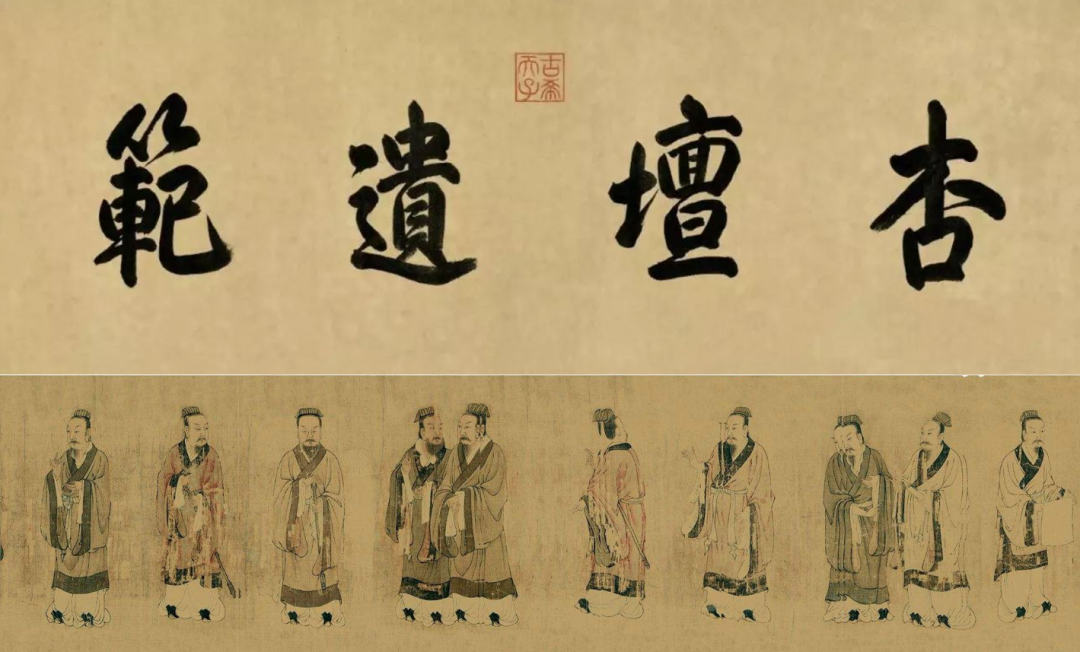 杏壇遺範
古希天子